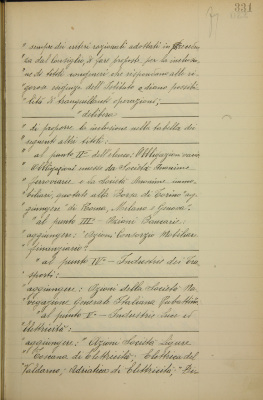 331
" dei criteri ragionati adottati in
" za dal Consiglio, di fare proposte per la inclusio
" ne di titoli che rispondono alle ri
" esigenze dell'Istituto e diano possibi
" lità di tranquillanti operazioni,
" delibera
" di proporre la inclusione nella tabella dei
" seguenti altri titoli:
" al punto II° dell'elenco: Obbligazioni varie
" Obbligazioni emesse da Società Anonime
" ferroviarie e da Società Anonime immo
" biliari, quotate alle Borse di Torino "ag
" giungere" di Roma, Milano e Genova".
" al punto III° Azioni Bancarie.
" aggiungere: "Azioni Consorzio Mobiliare
" finanziario".
" al punto IV° - Industrie dei Tra
" sporti:
" aggiungere: Azioni della Società Na
" vigazione Generale Italiana Rubattino
" al punto V° - Industrie luce ed
" elettricità:
" aggiungere: "Azioni Società Ligure
" Toscana di Elettricità; Elettrica del
" Valdarno; Adriatica di Elettricità;